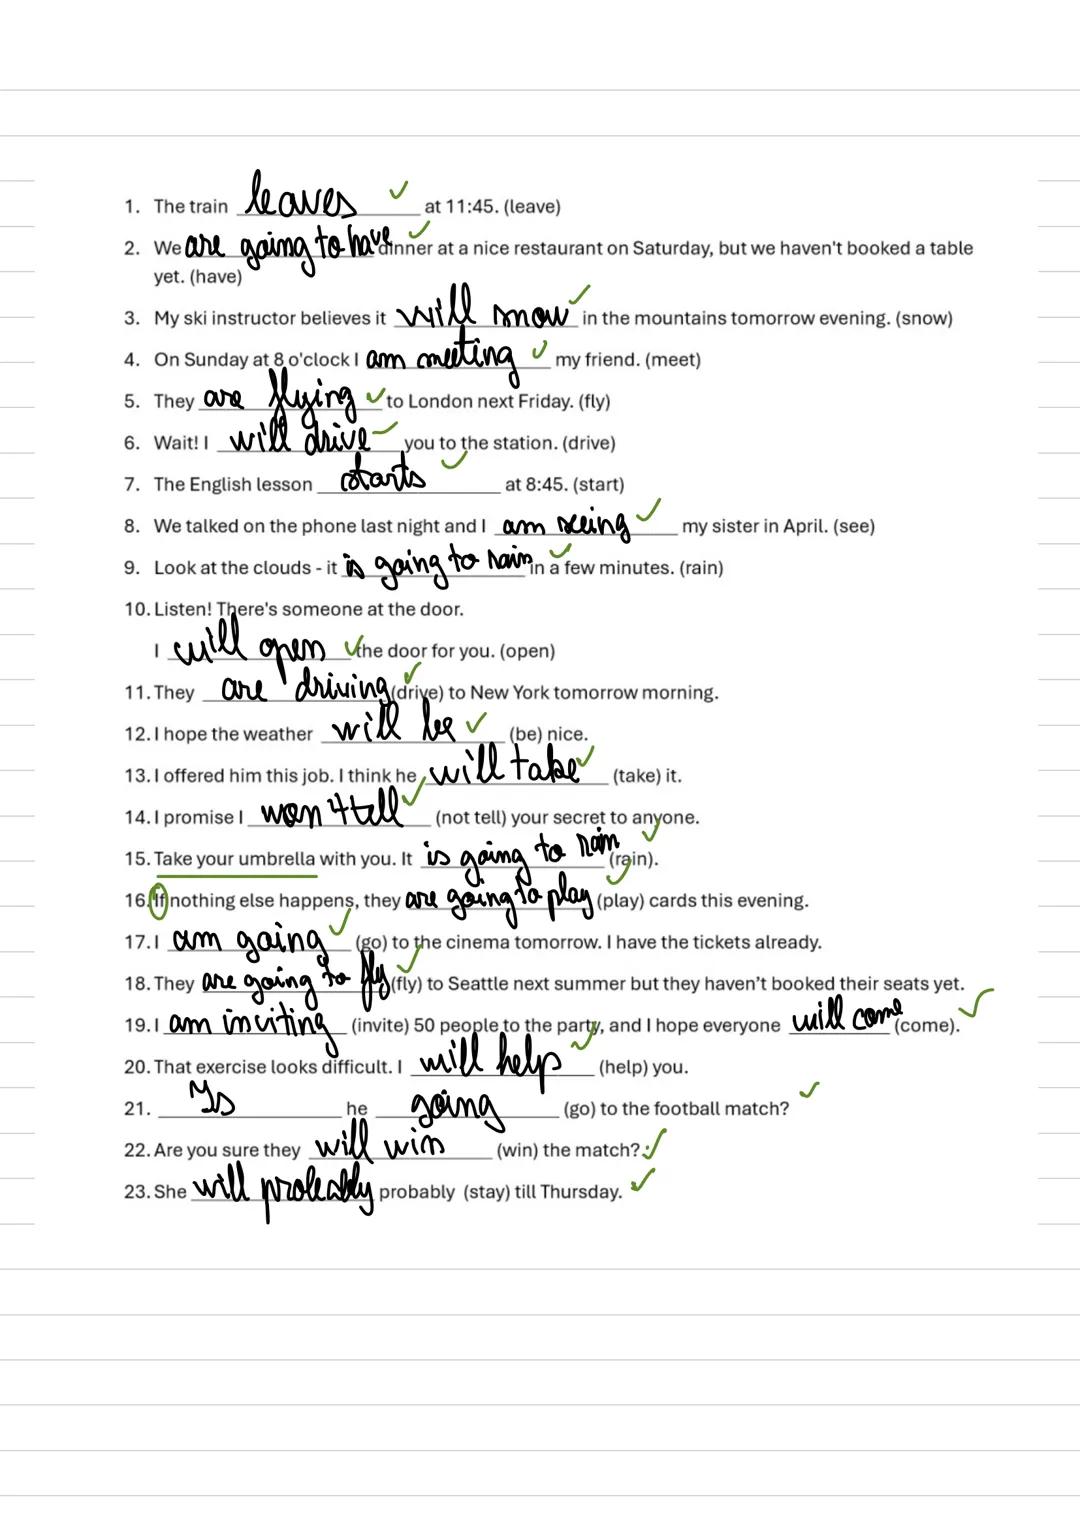 1. The train leaves at 11:45. (leave)
2. We are going to have dinner at a nice restaurant on Saturday, but we haven't booked a table
yet. (have)
3. My ski instructor believes it will snow in the mountains tomorrow evening. (snow)
4. On Sunday at 8 o'clock I am meeting my friend. (meet)
5. They are flying to London next Friday. (fly)
6. Wait! I will drive you to the station. (drive)
7. The English lesson starts at 8:45. (start)
8. We talked on the phone last night and I am seeing my sister in April. (see)
9. Look at the clouds - it is going to rain in a few minutes. (rain)
10. Listen! There's someone at the door.
I will open the door for you. (open)
11. They are driving (drive) to New York tomorrow morning.
12. I hope the weather will be (be) nice.
13. I offered him this job. I think he will take (take) it.
14. I promise I won't tell (not tell) your secret to anyone.
15. Take your umbrella with you. It is going to rain (rain).
16. If nothing else happens, they are going to play (play) cards this evening.
17. I am going (go) to the cinema tomorrow. I have the tickets already.
18. They are going to fly (fly) to Seattle next summer but they haven't booked their seats yet.
19. I am inviting (invite) 50 people to the party, and I hope everyone will come (come).
20. That exercise looks difficult. I will help (help) you.
21. Is he going (go) to the football match?
22. Are you sure they will win (win) the match?
23. She will probably probably (stay) till Thursday.